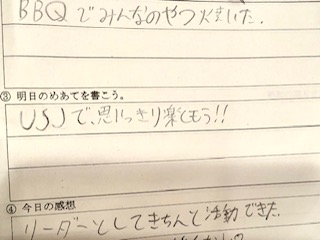 BBQでみんなのやつ焼いた.
③ 明日のめあてを書こう。
USJで、思いっきり楽しもう!!
④ 今日の感想
リーダーとしてきちんと活動できた.